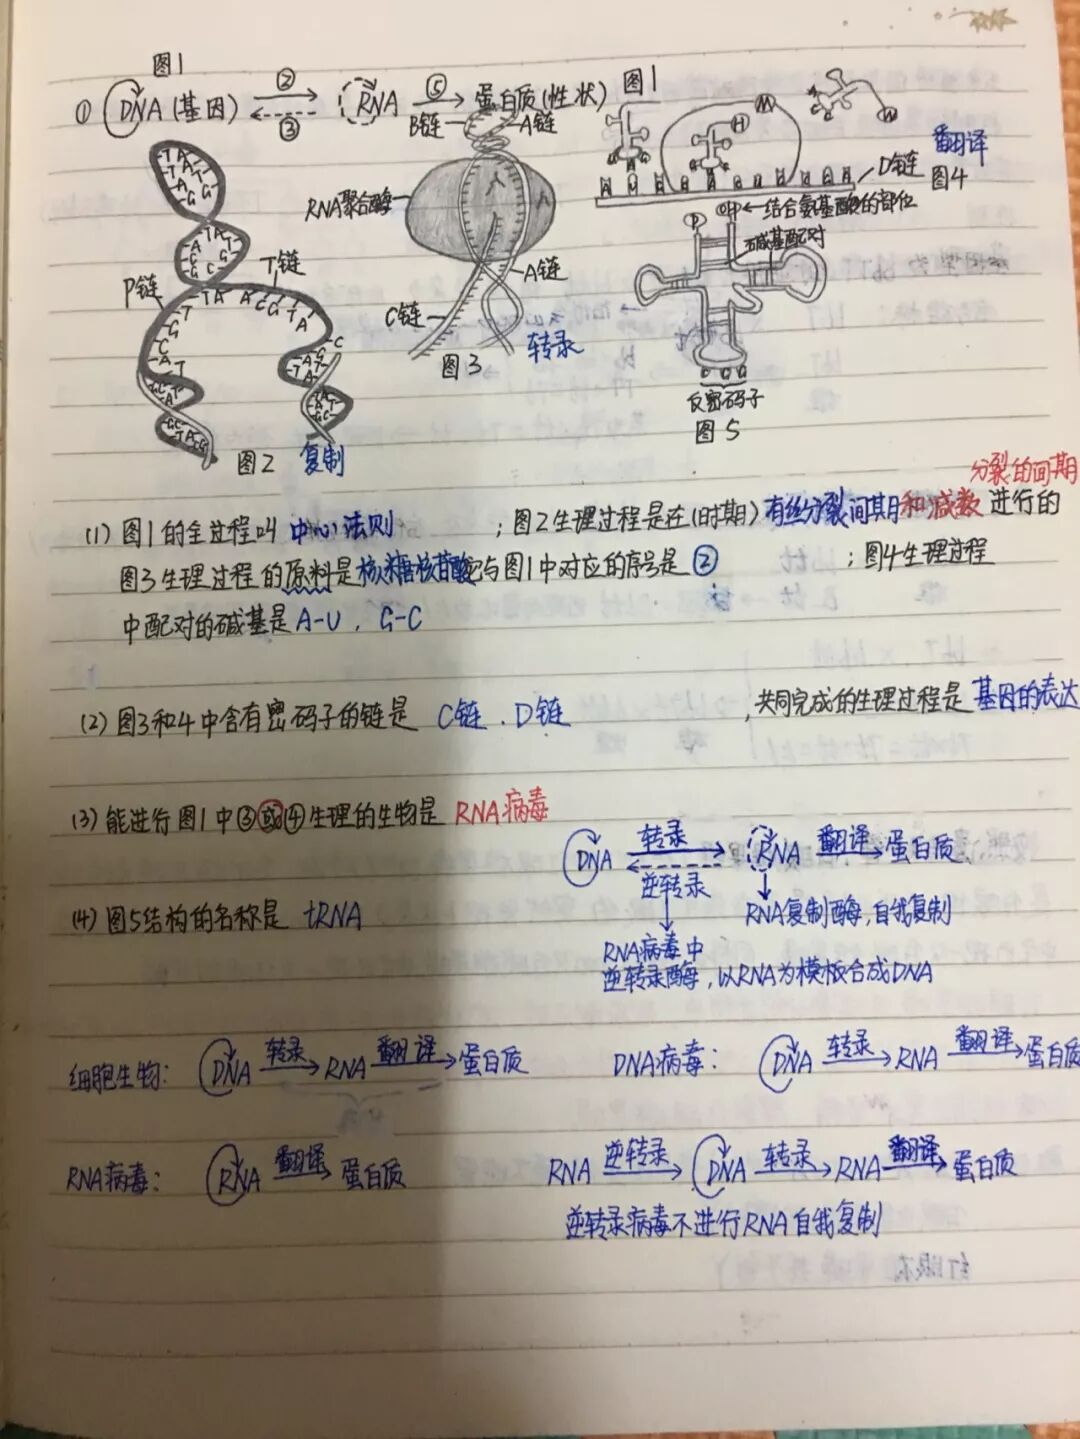 图1
① DNA(基因) ② ③ RNA ⑤ 蛋白质(性状)
图1
B链 A链
RNA聚合酶
A链
C链
图3 转录
P链 T链
图2 复制
M
H
D链 翻译
图4
P OH←结合氨基酸的部位
碱基配对
反密码子
图5
分裂的间期
(1) 图1的全过程叫 中心法则 ；图2生理过程是在(时期) 有丝分裂间期和减数 进行的
图3生理过程的原料是核糖核苷酸 与图1中对应的序号是 ② ；图4生理过程
中配对的碱基是 A-U ．G-C
(2) 图3和4中含有密码子的链是 C链 ．D链 ，共同完成的生理过程是 基因的表达
(3) 能进行图1中③或④生理的生物是 RNA病毒
DNA 转录 逆转录 RNA 翻译 蛋白质
RNA复制酶，自我复制
(4) 图5结构的名称是 tRNA
RNA病毒中
逆转录酶，以RNA为模板合成DNA
细胞生物： DNA 转录 RNA 翻译 蛋白质 DNA病毒： DNA 转录 RNA 翻译 蛋白质
RNA病毒： RNA 翻译 蛋白质 RNA 逆转录 DNA 转录 RNA 翻译 蛋白质
逆转录病毒不进行RNA自我复制